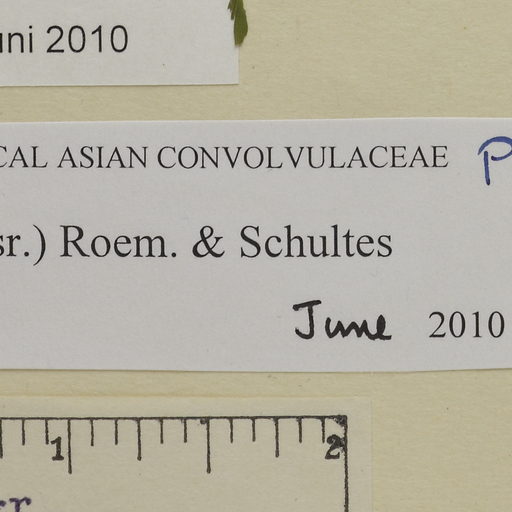 uni 2010
CAL ASIAN CONVOLVULACEAE P
sr.) Roem. & Schultes
June 2010
1 2
er